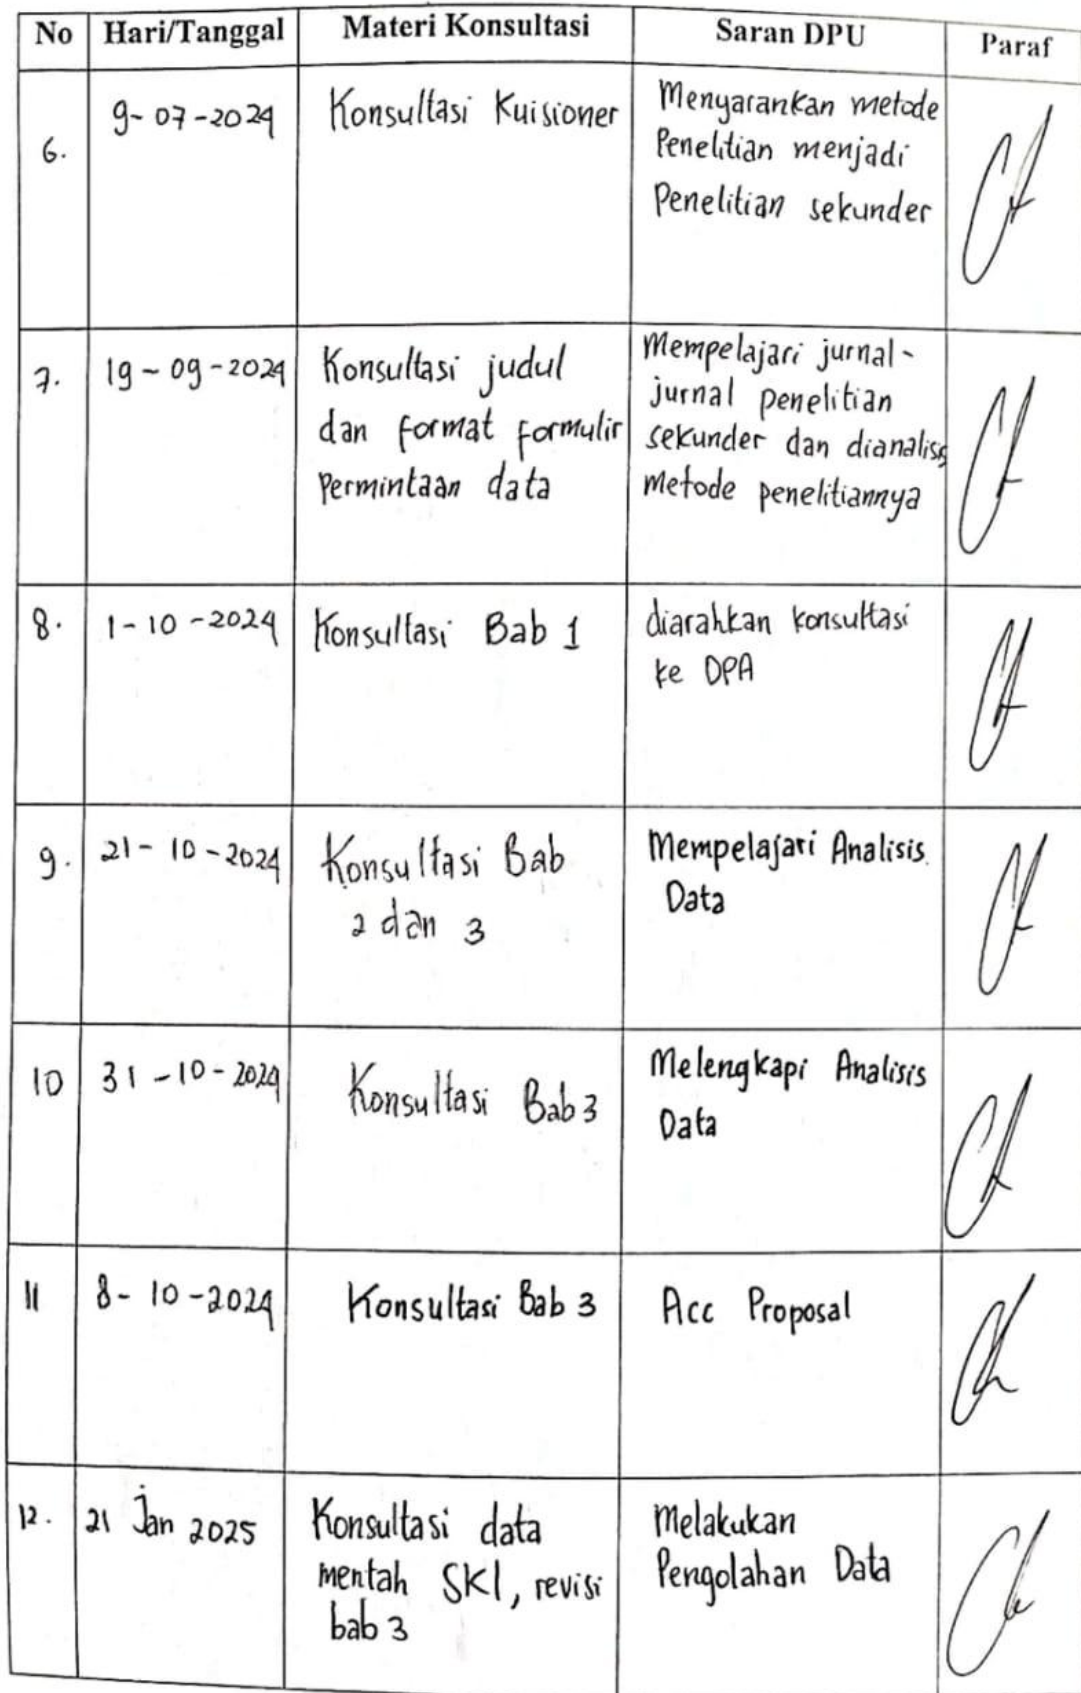 No Hari/Tanggal Materi Konsultasi Saran DPU Paraf
6.
9-07-2024
Konsultasi Kuisioner
Menyarankan metode
Penelitian menjadi
Penelitian sekunder
7.
19-09-2024
Konsultasi judul
dan format formulir
Permintaan data
Mempelajari jurnal-
jurnal penelitian
sekunder dan dianalisis
metode penelitiannya
8.
1-10-2024
Konsultasi Bab 1
diarahkan konsultasi
ke DPA
9.
21-10-2024
Konsultasi Bab
2 dan 3
Mempelajari Analisis
Data
10
31-10-2024
Konsultasi Bab 3
Melengkapi Analisis
Data
11
8-10-2024
Konsultasi Bab 3
Acc Proposal
12.
21 Jan 2025
Konsultasi data
mentah SKI, revisi
bab 3
Melakukan
Pengolahan Data